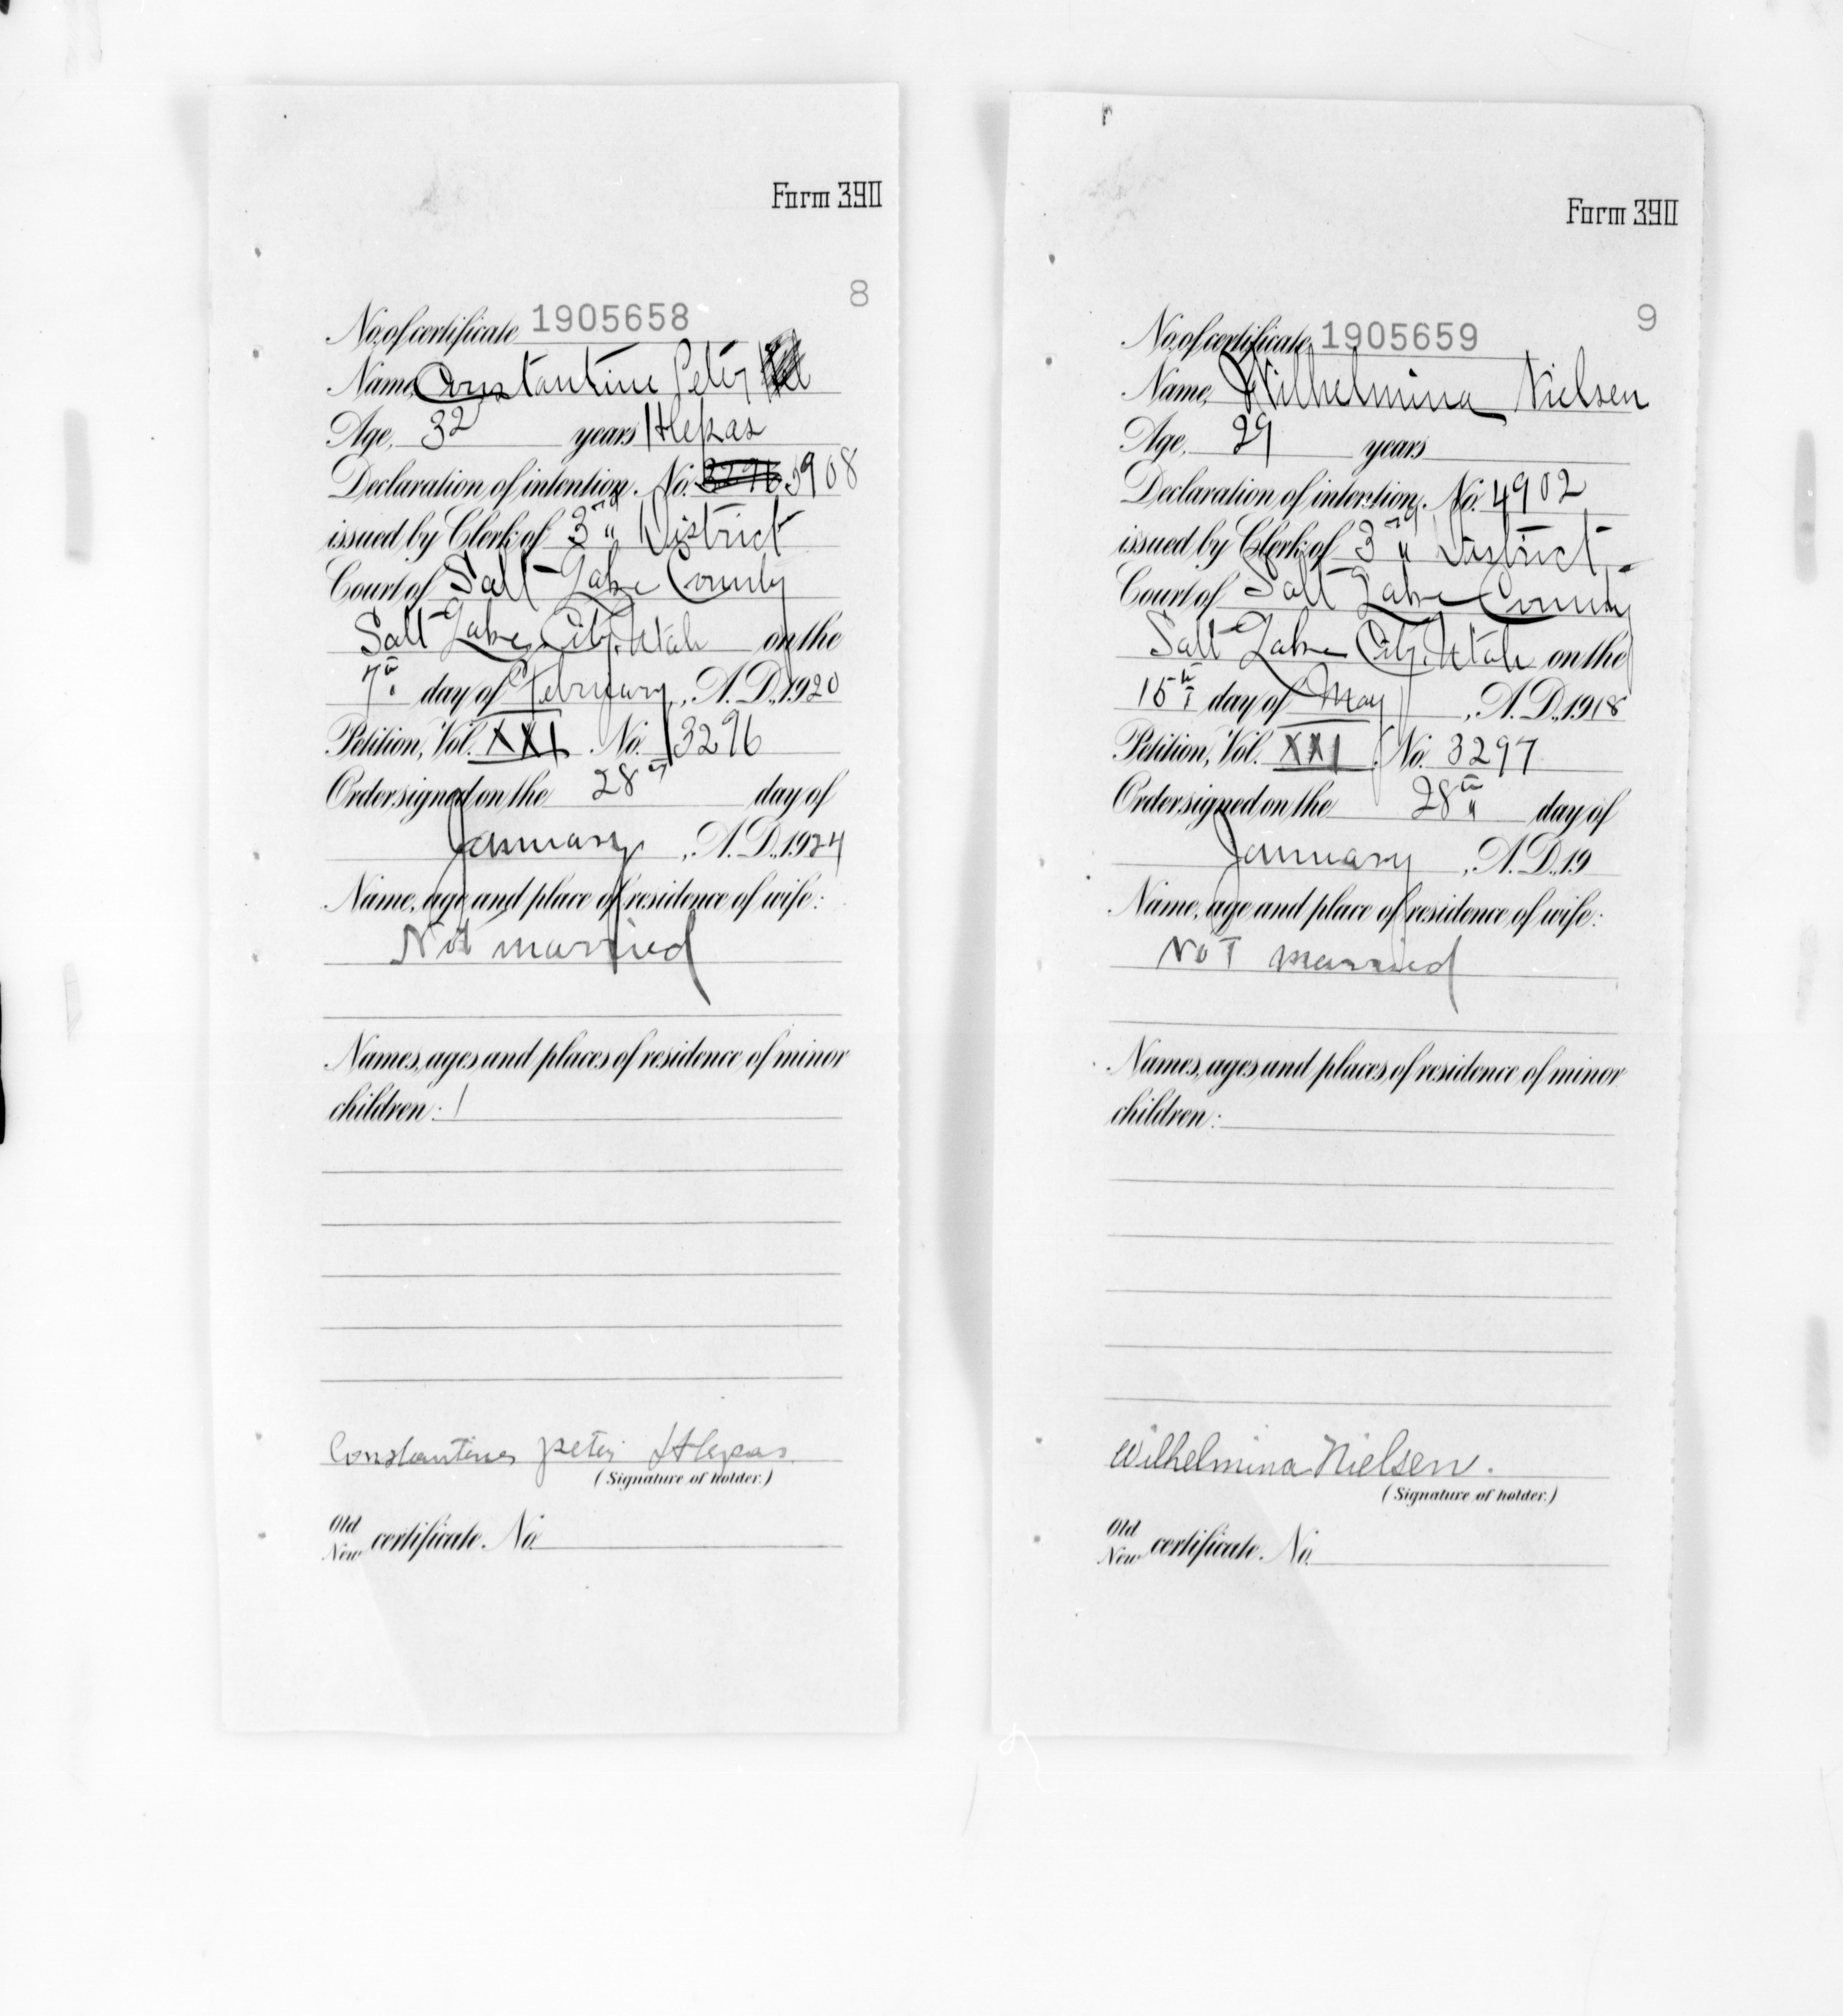 Form 390
8
No. of certificate 1905658
Name, Constantine Peter
Age, 32 years Hlepas
Declaration of intention, No. 3296 5908
issued by Clerk of 3rd District
Court of Salt Lake County
Salt Lake City, Utah on the
7th day of February, A. D., 1920
Petition, Vol. XXI No. 3296
Order signed on the 28th day of
January, A. D., 1924
Name, age and place of residence of wife:
Not married
Names, ages and places of residence of minor
children:
Constantine Peter Hlepas
(Signature of holder.)
Old
New certificate. No.
Form 390
9
No. of certificate 1905659
Name, Wilhelmina Nielsen
Age, 29 years
Declaration of intention, No. 4902
issued by Clerk of 3rd District
Court of Salt Lake County
Salt Lake City, Utah on the
15th day of May, A. D., 1918
Petition, Vol. XXI, No. 3297
Order signed on the 28th day of
January, A. D., 19
Name, age and place of residence of wife:
Not married
Names, ages and places of residence of minor
children:
Wilhelmina Nielsen.
(Signature of holder.)
Old
New certificate. No.